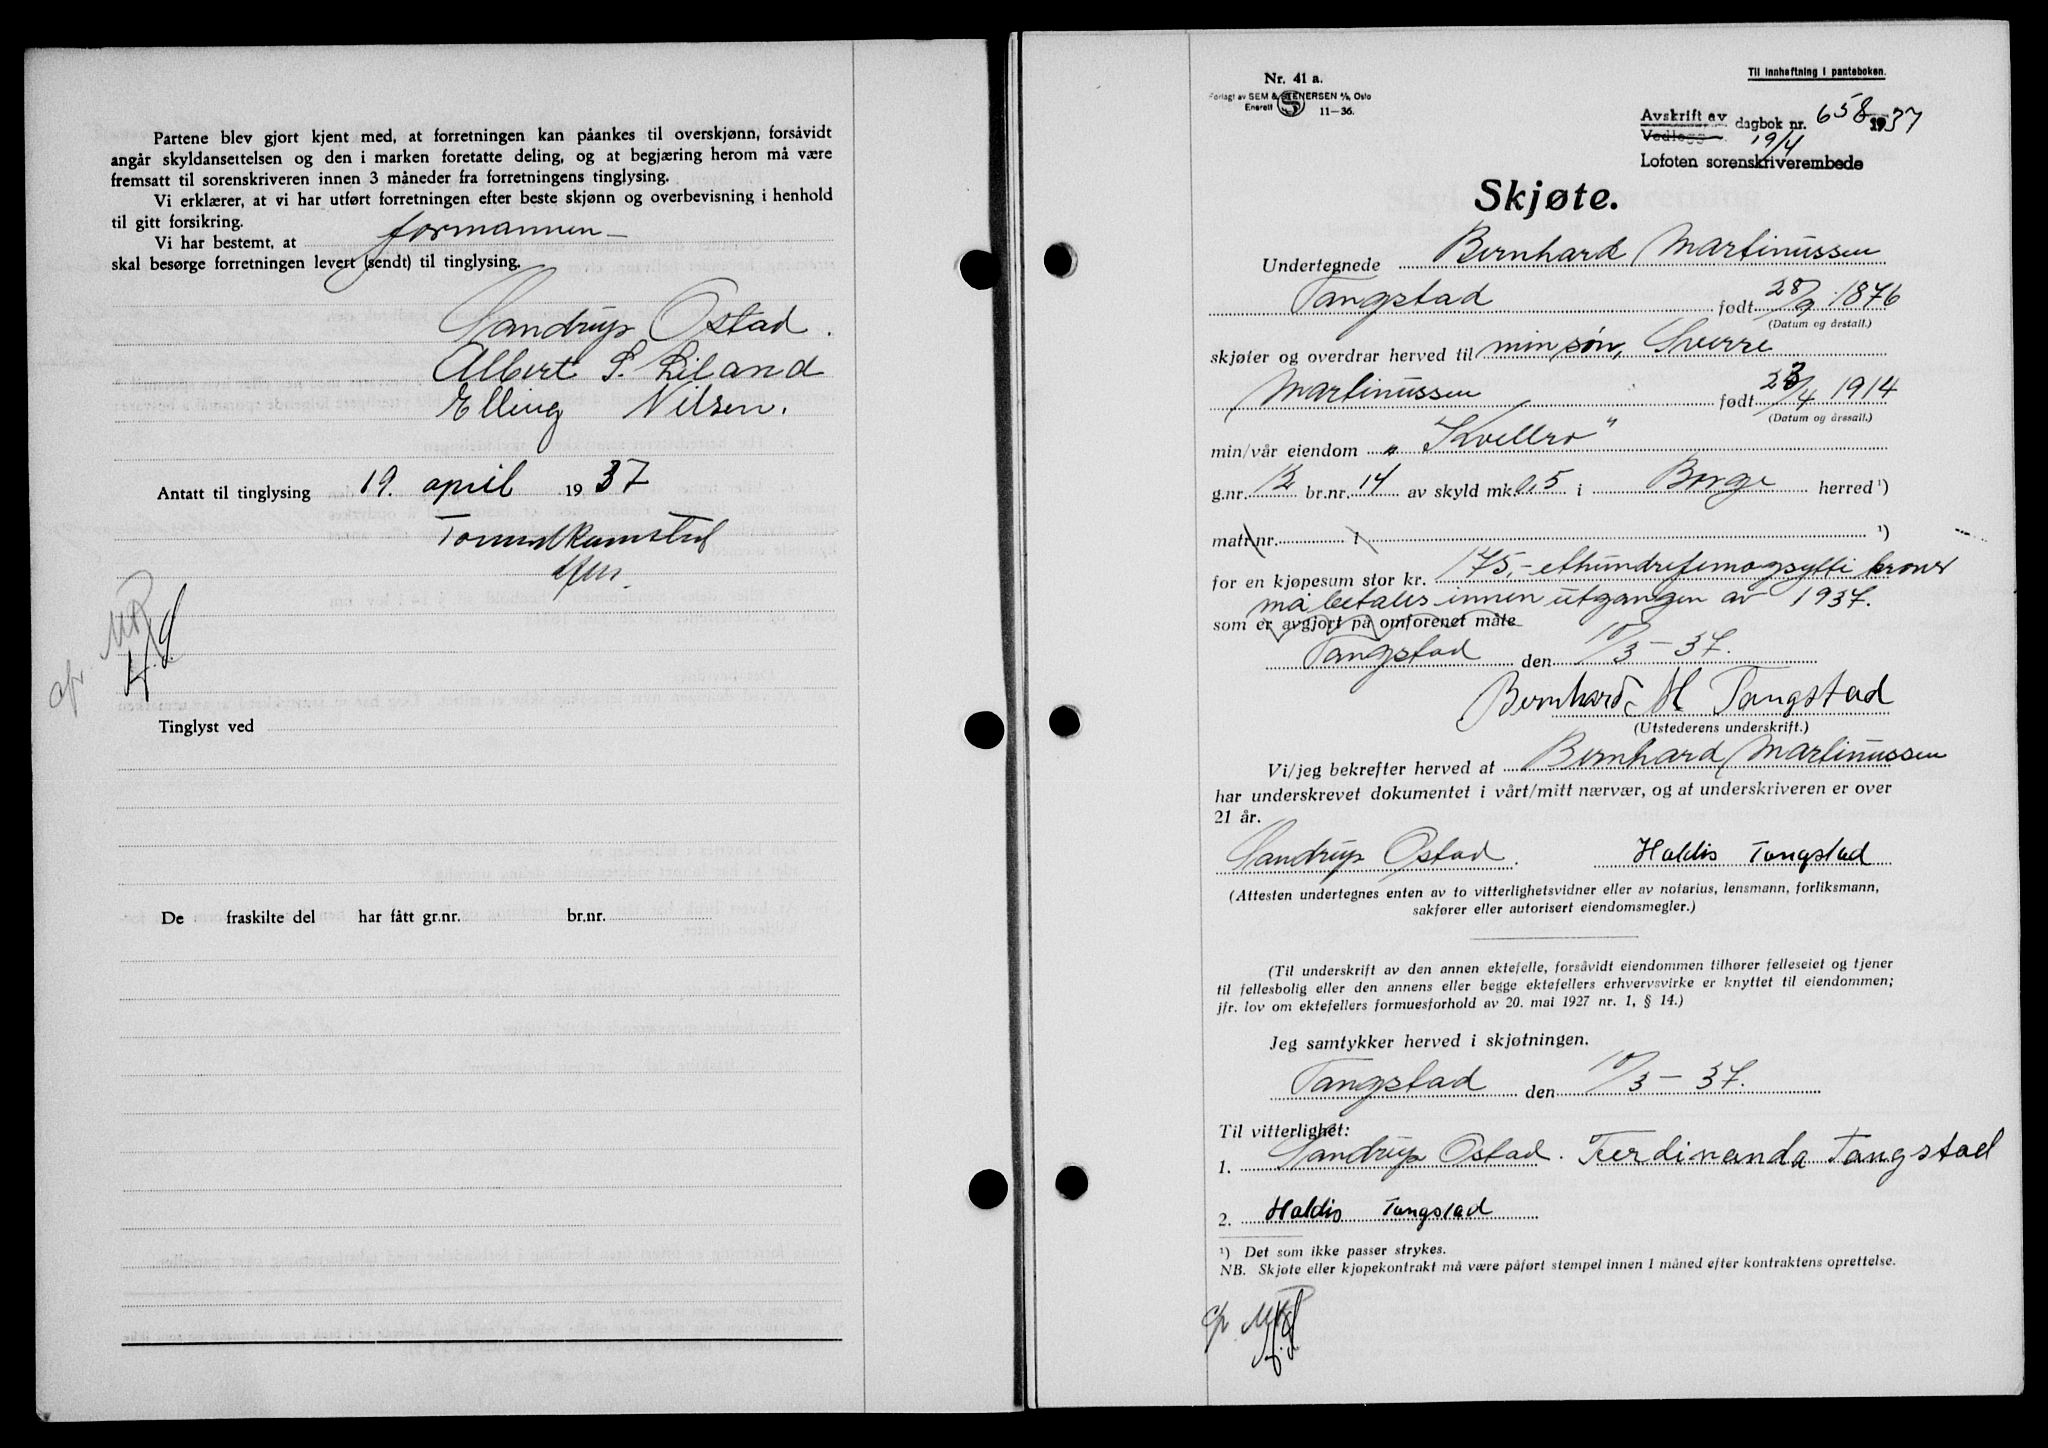 Partene blev gjort kjent med, at forretningen kan påankes til overskjønn, forsåvidt
angår skyldansettelsen og den i marken foretatte deling, og at begjæring herom må være
fremsatt til sorenskriveren innen 3 måneder fra forretningens tinglysing.
Vi erklærer, at vi har utført forretningen efter beste skjønn og overbevisning i henhold
til gitt forsikring.
Vi har bestemt, at formannen
skal besørge forretningen levert (sendt) til tinglysing.
Sandrup Ostad.
Albert S. Liland
Elling Nilsen.
Antatt til tinglysing 19. april 1937
Tinglyst ved
De fraskilte del har fått gr.nr. br.nr.
Nr. 41 a.
Forlagt av SEM & STENERSEN A/S, Oslo
Enerett 11-36.
Til innheftning i panteboken.
Avskrift av
Vedlegg dagbok nr. 658 1937
19/4
Lofoten sorenskriverembede
Skjøte.
Undertegnede Bernhard Martinussen
Tangstad født 28/9 1876
(Datum og årstall.)
skjøter og overdrar herved til min søn, Sverre
Martinussen født 23/4 1914
(Datum og årssall.)
min/vår eiendom „Kvellro"
g.nr. 12 br.nr. 14 av skyld mk. 0,5 i Borge herred ¹)
matr.nr. i ¹)
for en kjøpesum stor kr. 175,- ethundrefemogsytti kroner
må betales innen utgangen av 1937.
som er avgjort på omforenet måte
Tangstad den 10/3-37.
Bernhard M Tangstad
(Utstederens underskrift.)
Vi/jeg bekrefter herved at Bernhard Martinussen
har underskrevet dokumentet i vårt/mitt nærvær, og at underskriveren er over
21 år.
Sandrup Ostad. Haldis Tangstad
(Attesten undertegnes enten av to vitterlighetsvidner eller av notarius, lensmann, forliksmann,
sakfører eller autorisert eiendomsmegler.)
(Til underskrift av den annen ektefelle, forsåvidt eiendommen tilhører felleseiet og tjener
til fellesbolig eller den annens eller begge ektefellers erhvervsvirke er knyttet til eiendommen;
jfr. lov om ektefellers formuesforhold av 20. mai 1927 nr. 1, § 14.)
Jeg samtykker herved i skjøtningen.
Tangstad den 10/3-37.
Til vitterlighet:
1. Sandrup Ostad. Ferdinanda Tangstad
2. Haldis Tangstad
¹) Det som ikke passer strykes.
NB. Skjøte eller kjøpekontrakt må være påført stempel innen 1 måned efter kontraktens oprettelse.